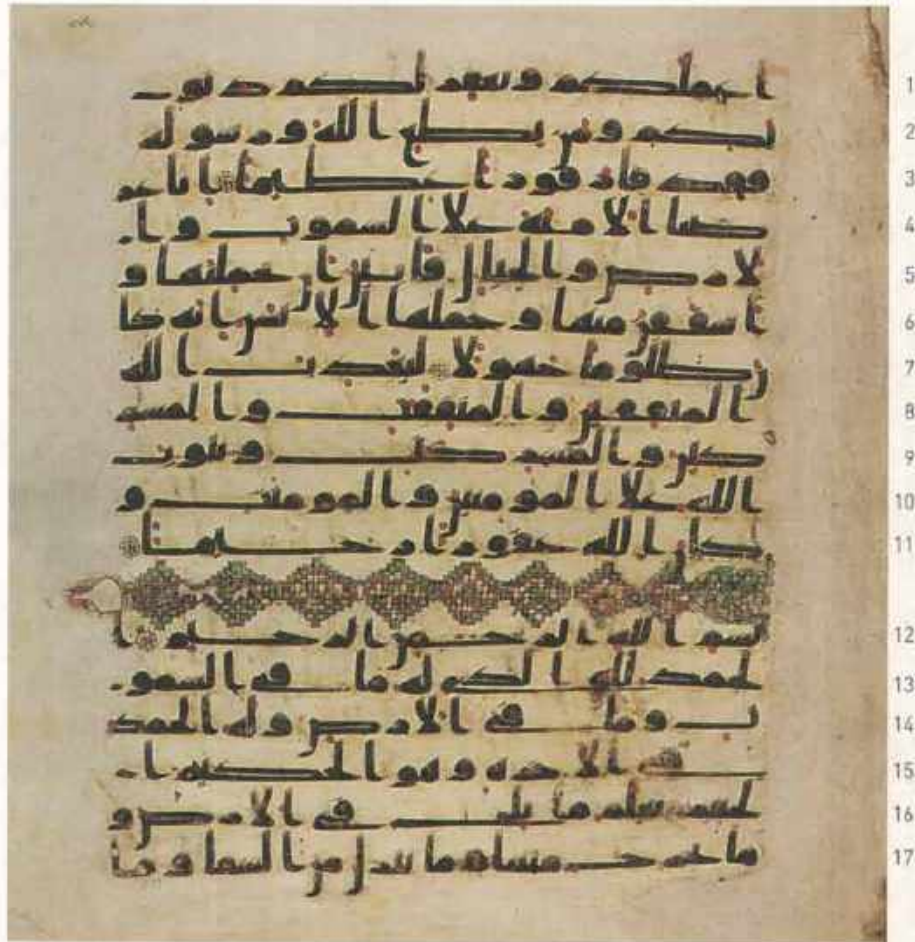 ا عملكم و يغفر لكم ذنو 1
بكم ومن يطع الله ورسوله 2
فقد فاز فوزا عظيما انا عر 3
ضنا الامنة علا السموت و ا 4
لارض والجبال فابين ان يحملنها و 5
اشفقن منها وحملها الانسن انه كا 6
ن ظلوما جهولا ليعذب الله 7
المنفقين والمنفقت والمشر 8
كين والمشركت ويتوب 9
الله علا المومنين والمومنت و 10
كان الله غفورا رحيما 11
بسم الله الرحمن الرحيم ا 12
لحمد لله الذي له ما في السمو 13
ت وما في الارض وله الحمد 14
في الاخرة وهو الحكيم ا 15
لخبير يعلم ما يلج في الارض و 16
ما يخرج منها وما ينزل من السما وما 17